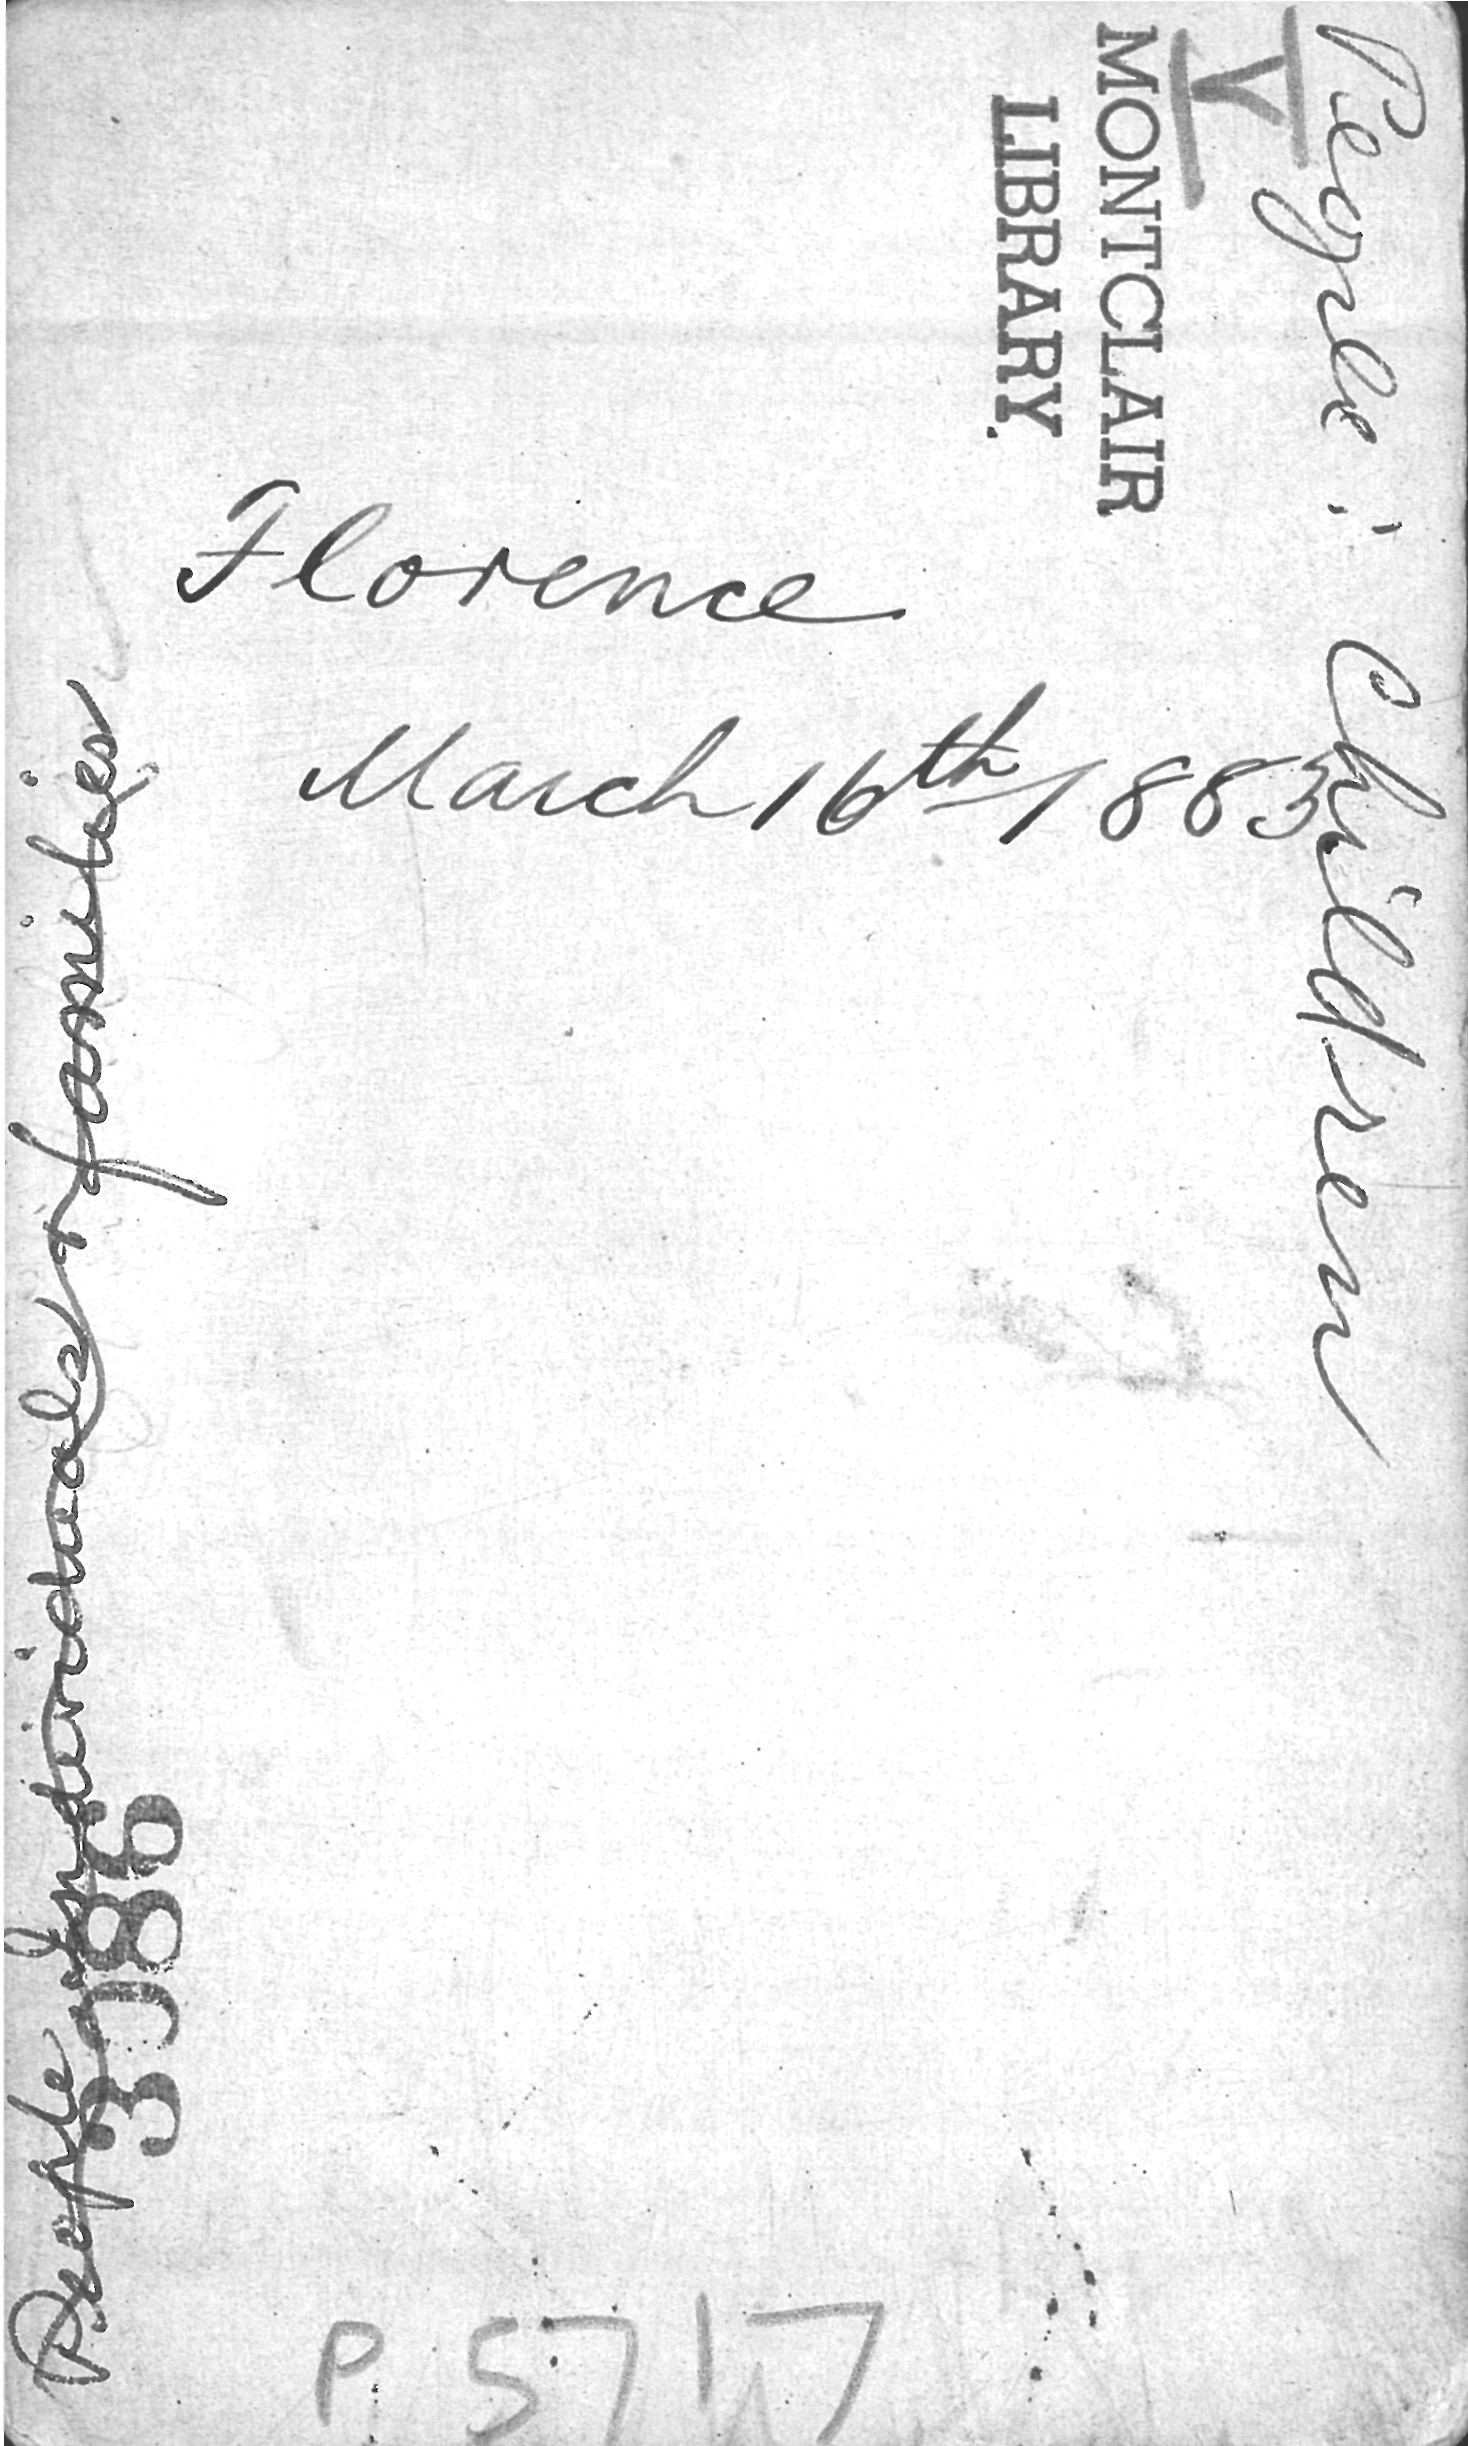 People : Children
Y
MONTCLAIR
LIBRARY.
Florence
March 16th/1883.
People - Individuals & families
3086
P 5717